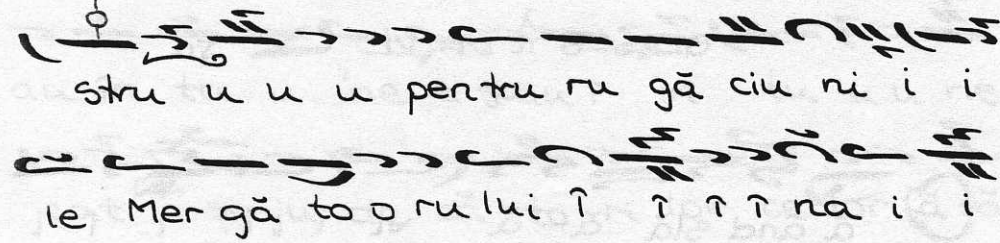 stru u u u pentru ru gă ciu ni i i
le Mer gă to o ru lui Î Î Î Î na i i